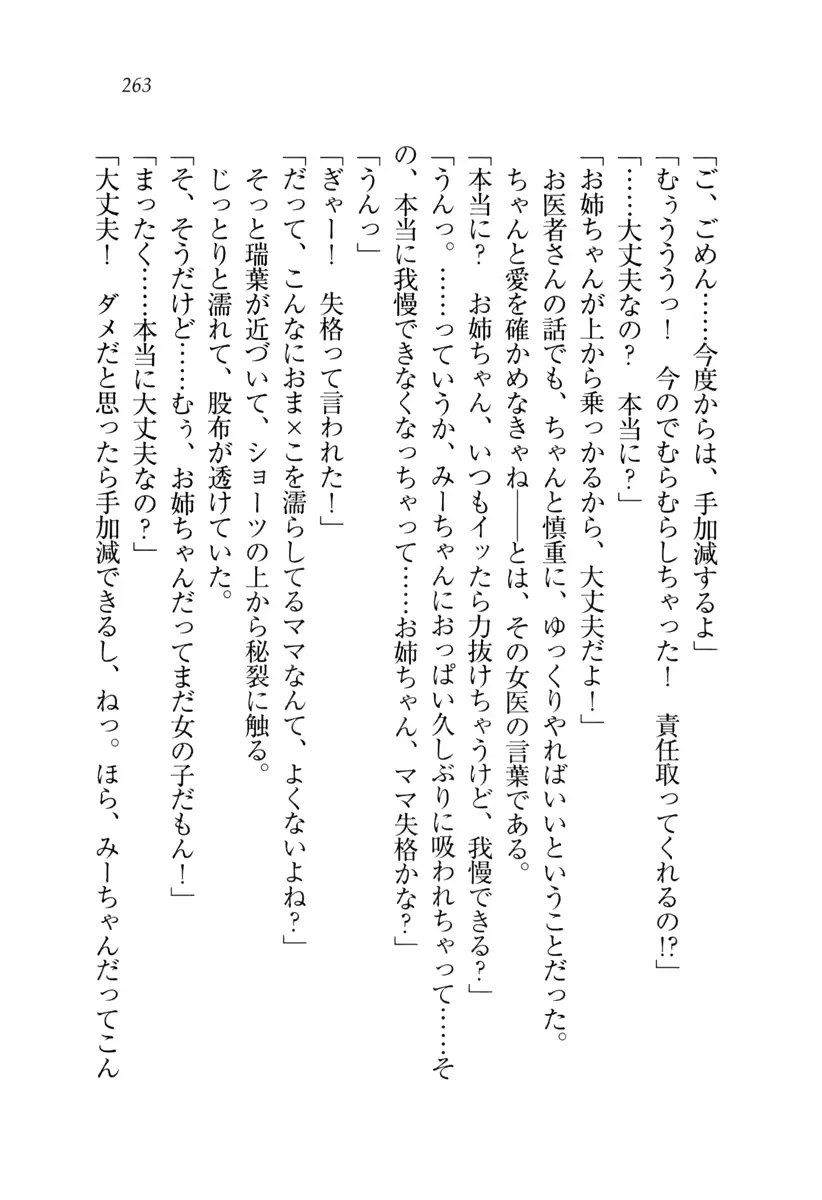 263
「ご、ごめん……今度からは、手加減するよ」
「むぅううっ！　今のでむらむらしちゃった！　責任取ってくれるの!?」
「……大丈夫なの？　本当に？」
「お姉ちゃんが上から乗っかるから、大丈夫だよ！」
お医者さんの話でも、ちゃんと慎重に、ゆっくりやればいいということだった。
ちゃんと愛を確かめなきゃね――とは、その女医の言葉である。
「本当に？　お姉ちゃん、いつもイッたら力抜けちゃうけど、我慢できる？」
「うんっ。……っていうか、みーちゃんにおっぱい久しぶりに吸われちゃって……そ
の、本当に我慢できなくなっちゃって……お姉ちゃん、ママ失格かな？」
「うんっ」
「ぎゃー！　失格って言われた！」
「だって、こんなにおま×こを濡らしてるママなんて、よくないよね？」
そっと瑞葉が近づいて、ショーツの上から秘裂に触る。
じっとりと濡れて、股布が透けていた。
「そ、そうだけど……むぅ、お姉ちゃんだってまだ女の子だもん！」
「まったく……本当に大丈夫なの？」
「大丈夫！　ダメだと思ったら手加減できるし、ねっ。ほら、みーちゃんだってこん